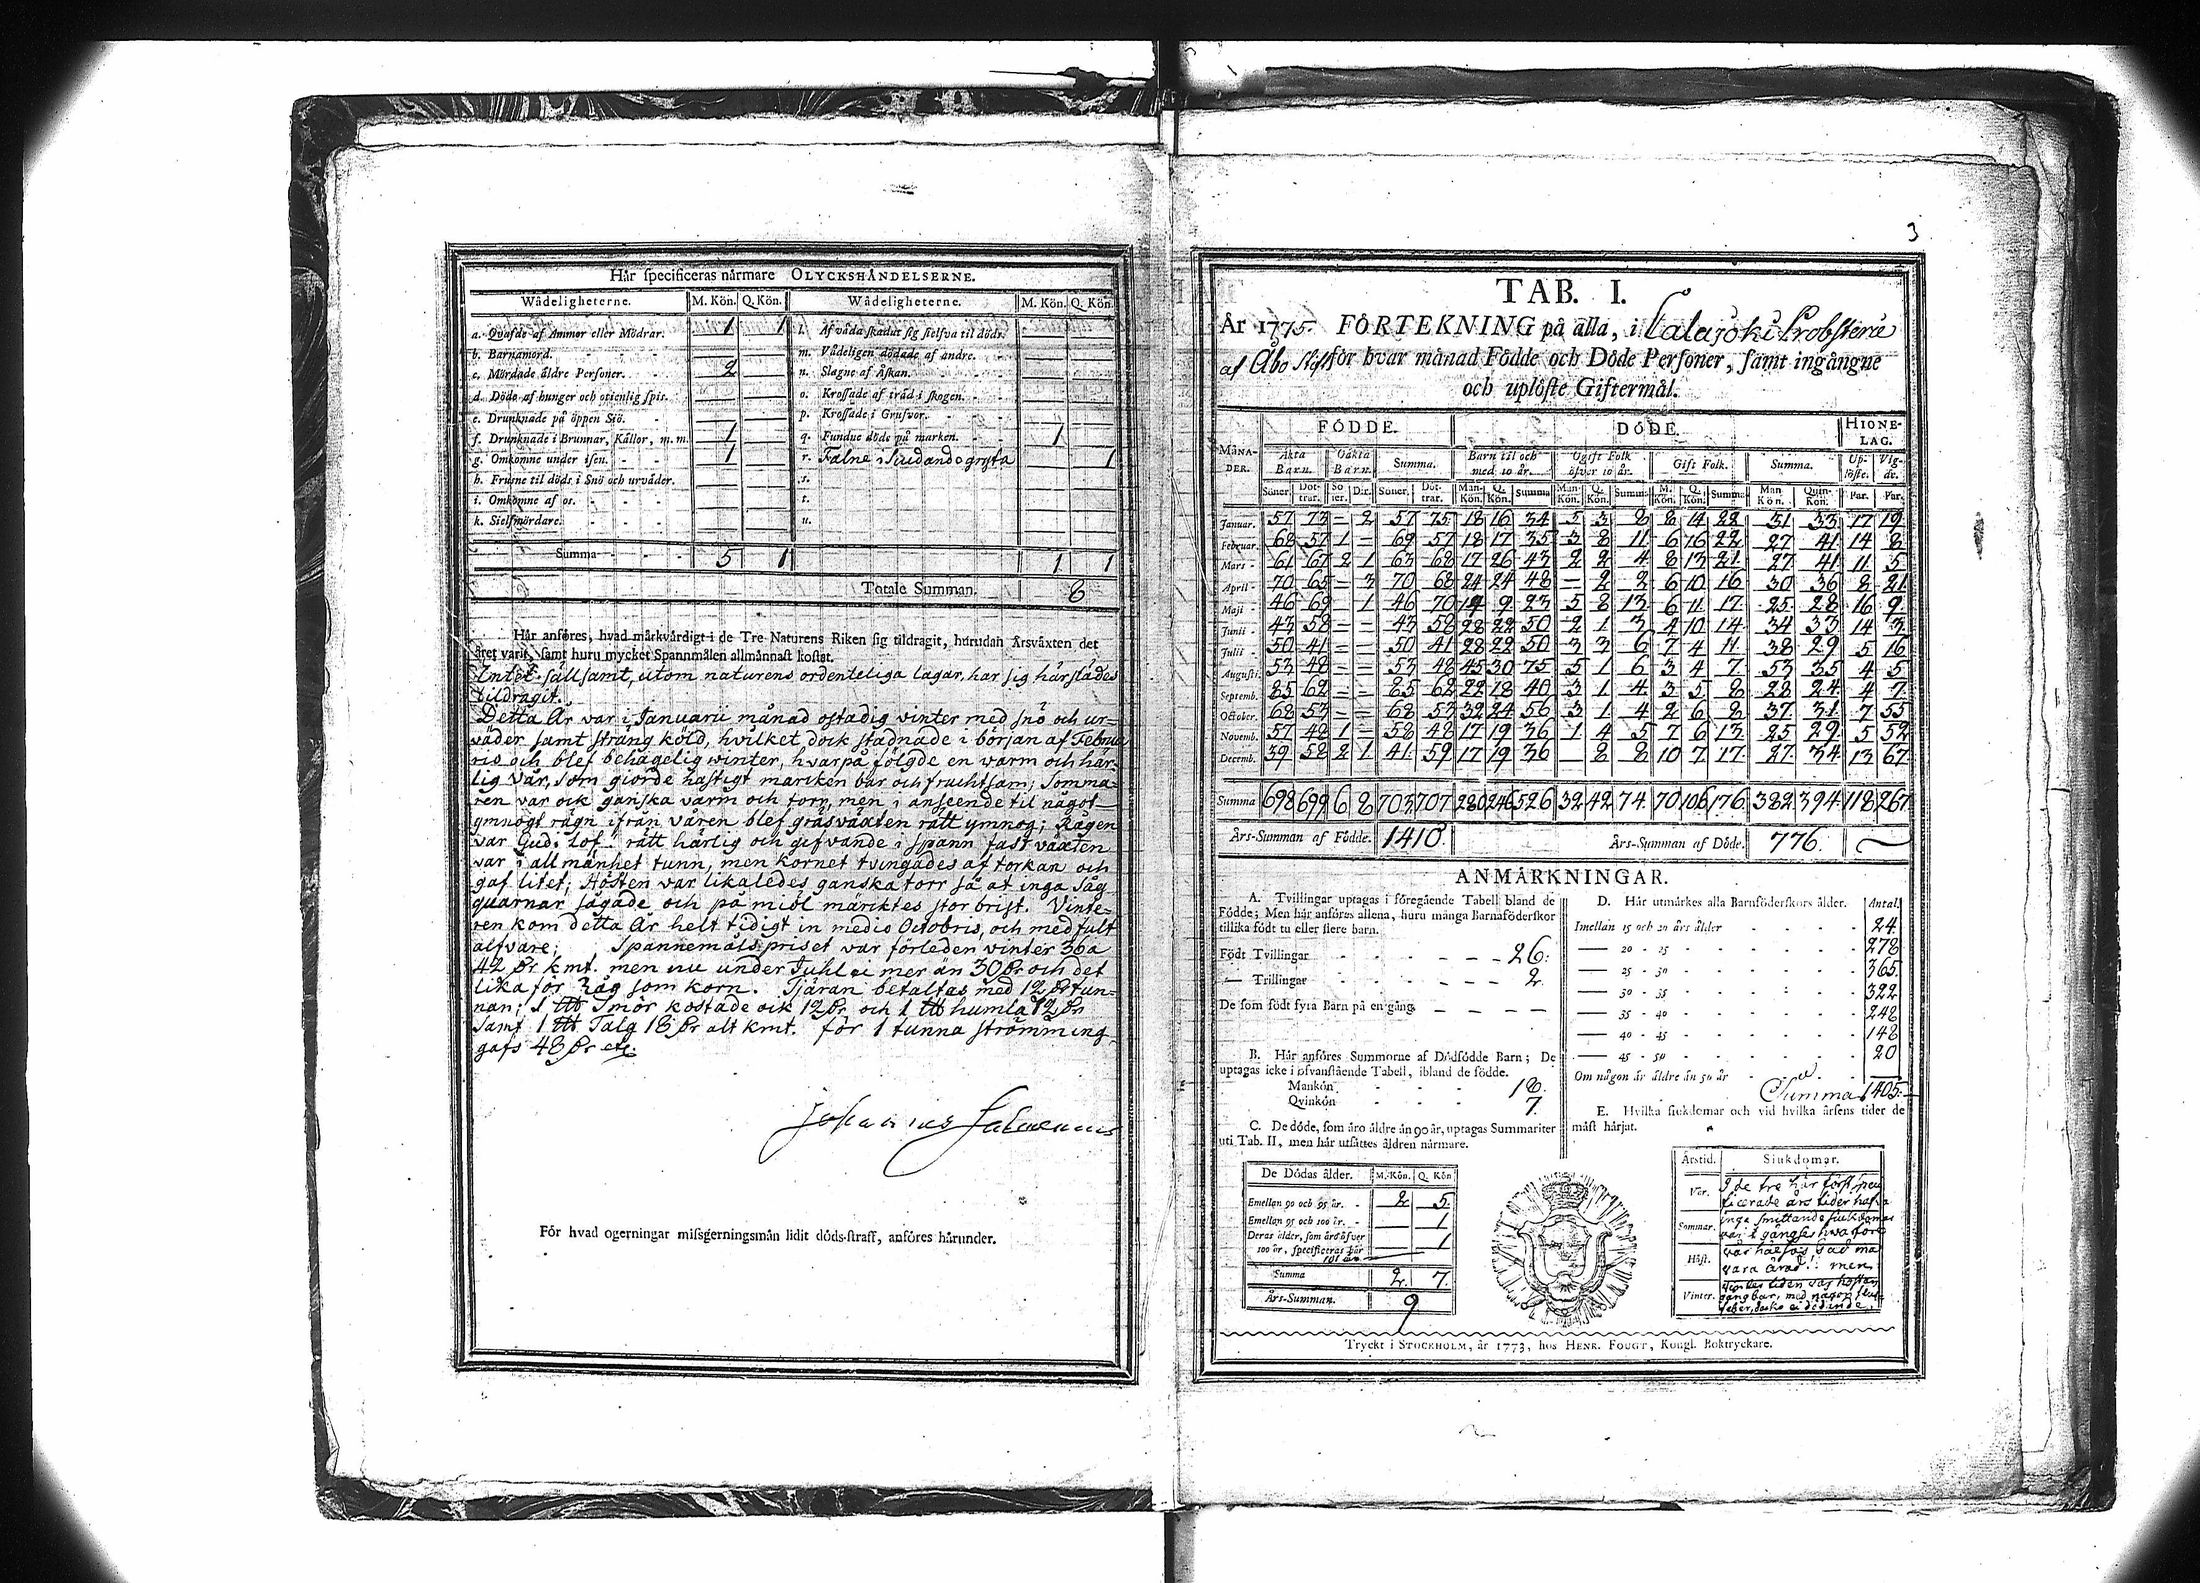 Hår specificeras nårmare OLYCKSHÅNDELSERNE.
Wådeligheterne. M. Kön. Q. Kön. Wådeligheterne. M. Kön. Q. Kön.
a. Qvafde af Ammor eller Mödrar. 1 1 l. Af våda skadat sig sielfva til döds.
b. Barnamord. m. Vådeligen dödade af andre.
c. Mördade åldre Personer. 2 n. Slagne af Åskan.
d. Döde af hunger och otienlig spis. o. Krossade af tråd i skogen.
e. Drunknade på öppen Siö. p. Krossade i Grufvor.
f. Drunknade i Brunnar, Kållor, m. m. 1 q. Fundne döde på marken. 1
g. Omkomne under isen. 1 r. Falne i siudando gryta 1
h. Frusne til döds i Snö och urvåder. s.
i. Omkomne af os. t.
k. Sielfmördare. u.
Summa 5 1 1 1
Totale Summan. 8
Hår anföres, hvad mårkvårdigt i de Tre Naturens Riken sig tildragit, hurudan Årsvåxten det
året varit, samt huru mycket Spannmålen allmånnast kostat.
Intet sällsamt, utom naturens ordenteliga lagar, har sig härstädes
tildragit.
Detta År var i Januarii månad ostadig vinter med snö och ur=
väder samt sträng köld, hvilket dock stadnade i början af Februa
rii och blef behagelig winter, hvarpå fölgde en warm och här=
lig vår, som giorde hastigt marcken bar och fruchtsam; Somma=
ren var ock ganska varm och torr, men i anseende til något
ymnogt rägn ifrån våren blef gräsväxten rätt ymnog; Rågen
var Gudi lof rätt härlig och gifvande i spann fast växten
var i allmänhet tunn, men kornet tvingades af torkan och
gaf litet; Hösten var likaledes ganska torr så at inga såg
quarnar sågade och på miöl märktes stor brist. Vinte=
ren kom detta År helt tidigt in medio Octobris, och med fult
alfvare; Spannemåls priset var förleden vinter 36 a
42 Dr kmt. men nu under Juhl ei mer än 30 Dr och det
lika för råg som korn. Tjäran betaltas med 12 Dr tun=
nan; 1 ltt Smör kostade ock 12 Dr och 1 ltt humla 12 Dr
samt 1 ltt Talg 18 Dr alt kmt. för 1 tunna strömming
gafs 48 Dr etc.
Johannes
För hvad ogerningar missgerningsmån lidit döds-straff, anföres hårunder.
3
TAB. I.
År 1775. FÖRTEKNING på alla, i Calajoki Probsterie
af Åbo Stift för hvar månad Födde och Döde Personer, samt ingångne
och uplöste Giftermål.
FÖDDE. DÖDE. HIONE-LAG.
MÅNA-DER. Åkta Barn. Oåkta Barn. Summa. Barn til och med 10 år. Ogift Folk öfver 10 år. Gift Folk. Summa. Up-löste. Vig-de.
Söner. Döt-trar. Sö ner. Dtr. Söner. Döt-trar. Man-Kön. Q. Kön. Summa Man-Kön. Q. Kön. Summa M. Kön. Q. Kön. Summa Man Kön. Quin-Kön. Par. Par.
Januar. 57 73 - 2 57 75 18 16 34 5 3 8 8 14 22 31 33 17 19
Februar. 68 57 1 - 69 57 18 17 35 3 8 11 6 16 22 27 41 14 8
Mars 61 67 2 1 63 68 17 26 43 2 2 4 8 13 21 27 41 11 5
April 70 65 - 3 70 68 24 24 48 - 2 2 6 10 16 30 36 8 21
Maji 46 69 - 1 46 70 14 9 23 5 8 13 6 11 17 25 28 16 9
Junii 43 58 - - 43 58 28 22 50 2 1 3 4 10 14 34 33 14 3
Julii 50 41 - - 50 41 28 22 50 3 3 6 7 4 11 38 29 5 16
Augusti. 53 48 - - 53 48 45 30 75 5 1 6 3 4 7 53 35 4 5
Septemb. 85 62 - - 85 62 22 18 40 3 1 4 3 5 8 28 24 4 7
Octobr. 68 53 - - 68 53 32 24 56 3 1 4 2 6 8 37 31 7 55
Novemb. 57 48 1 - 58 48 17 19 36 1 4 5 7 6 13 25 29 5 52
Decemb. 39 58 2 1 41 59 17 19 36 - 8 8 10 7 17 27 34 13 67
Summa 698 699 6 8 703 707 280 246 526 32 42 74 70 106 176 382 394 118 267
Års-Summan af Födde. 1410. Års-Summan af Döde. 776.
ANMÅRKNINGAR.
A. Tvillingar uptagas i föregående Tabell bland de
Födde; Men hår anföras allena, huru många Barnaföderskor
tillika födt tu eller flere barn.
Födt Tvillingar 26.
— Trillingar 2.
De som födt fyra Barn på en gång.
B. Hår anföres Summorne af Dödfödde Barn; De
uptagas icke i ofvanstående Tabell, ibland de födde.
Mankön 18.
Qvinkön 7.
C. De döde, som åro åldre ån 90 år, uptagas Summariter
uti Tab. II, men hår utsåttes åldren nårmare.
De Dödas ålder. M. Kön. Q. Kön
Emellan 90 och 95 år. 2 5.
Emellan 95 och 100 år. 1
Deras ålder, som åro öfver
100 år, specificeras hår 1
101 år
Summa 2. 7.
Års-Summan. 9
D. Hår utmårkes alla Barnföderskors ålder. Antal.
Imellan 15 och 20 års ålder 24
— 20 - 25 278
— 25 - 30 365
— 30 - 35 322
— 35 - 40 248
— 40 - 45 148
— 45 - 50 20
Om någon år åldre ån 50 år
Summa 1405.
E. Hvilka siukdomar och vid hvilka årsens tider de
måst hårjat.
Årstid. Siukdomar.
Vår. I de tre här först speci
ficerade års tider hafva
Sommar. inga smittande siukdomar
varit gångse
Höst.
vara ärad! men
Vinter.
gångbar, med någon
feber, dock ei dödande.
Tryckt i STOCKHOLM, år 1773, hos HENR. FOUGT, Kongl. Boktryckare.